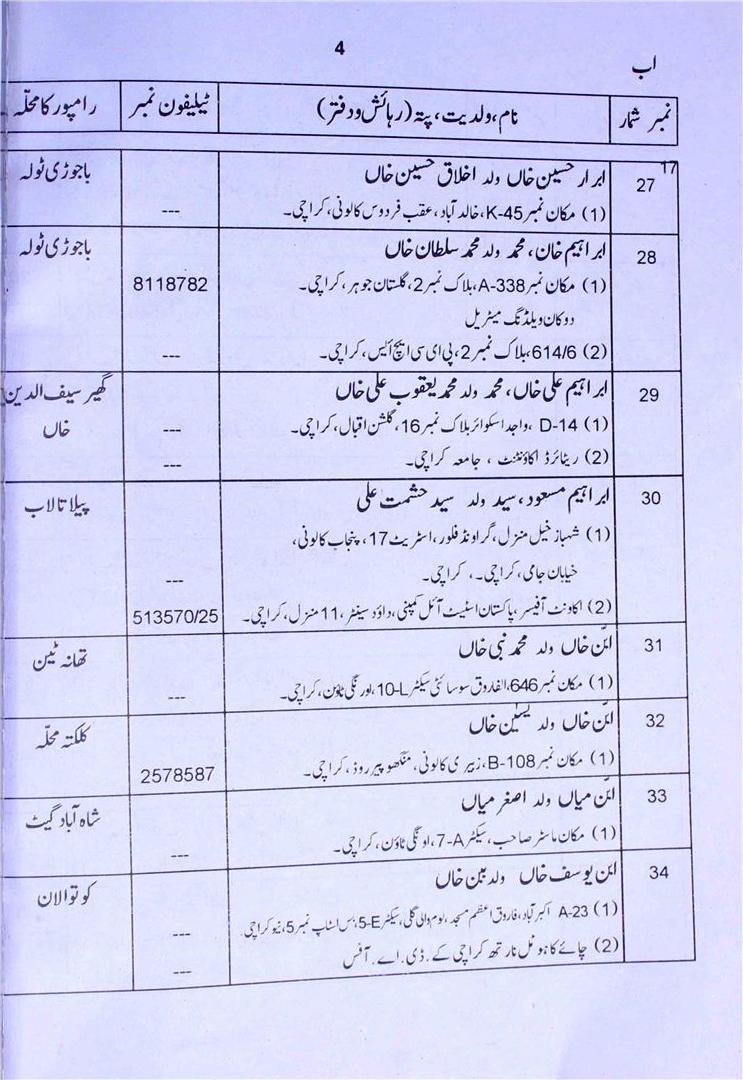 4
اب
نمبر شمار	نام، ولدیت، پتہ (رہائش و دفتر)	ٹیلیفون نمبر	رامپور کا محلّہ
17
27	ابرار حسین خاں ولد اخلاق حسین خاں	باجوڑی ٹولہ
(1) مکان نمبر K-45، خالد آباد، عقب فردوس کالونی، کراچی۔	---
28	ابراہیم خان، محمد ولد محمد سلطان خاں	باجوڑی ٹولہ
(1) مکان نمبر A-338، بلاک نمبر 2، گلستان جوہر، کراچی۔	8118782
دوکان ویلڈنگ میٹریل
(2) 614/6، بلاک نمبر 2، پی ای سی ایچ ایس، کراچی۔	---
29	ابراہیم علی خاں، محمد ولد محمد یعقوب علی خاں	گھیر سیف الدین
(1) D-14، واجد اسکوائر بلاک نمبر 16، گلشن اقبال، کراچی۔	---	خاں
(2) ریٹائرڈ اکاؤنٹنٹ، جامعہ کراچی۔	---
30	ابراہیم مسعود، سید ولد سید حشمت علی	پیلا تالاب
(1) شہباز خیل منزل، گراونڈ فلور، اسٹریٹ 17، پنجاب کالونی،
خیابان جامی، کراچی۔، کراچی۔	---
(2) اکاونٹ آفیسر، پاکستان اسٹیٹ آئل کمپنی، داؤد سینٹر، 11 منزل، کراچی۔	513570/25
31	ابّن خاں ولد محمد نبی خاں	تھانہ ٹین
(1) مکان نمبر 646، الفاروق سوسائٹی سیکٹر 10-L، اورنگی ٹاؤن، کراچی۔	---
32	ابّن خاں ولد یٰسین خاں	کلکتہ محلّہ
(1) مکان نمبر B-108، زبیری کالونی، منگھو پیر روڈ، کراچی۔	2578587
33	ابّن میاں ولد اصغر میاں	شاہ آباد گیٹ
(1) مکان ماسٹر صاحب، سیکٹر 7-A، اونگی ٹاؤن، کراچی۔	---
34	ابن یوسف خاں ولد بین خاں	کوتوالان
(1) A-23 اکبر آباد، فاروق اعظم مسجد، لوم والی گلی، سیکٹر 5-E، بس اسٹاپ نمبر 5، نیو کراچی۔	---
(2) چائے کا ہوٹل نارتھ کراچی کے۔ڈی۔اے۔ آفس	---